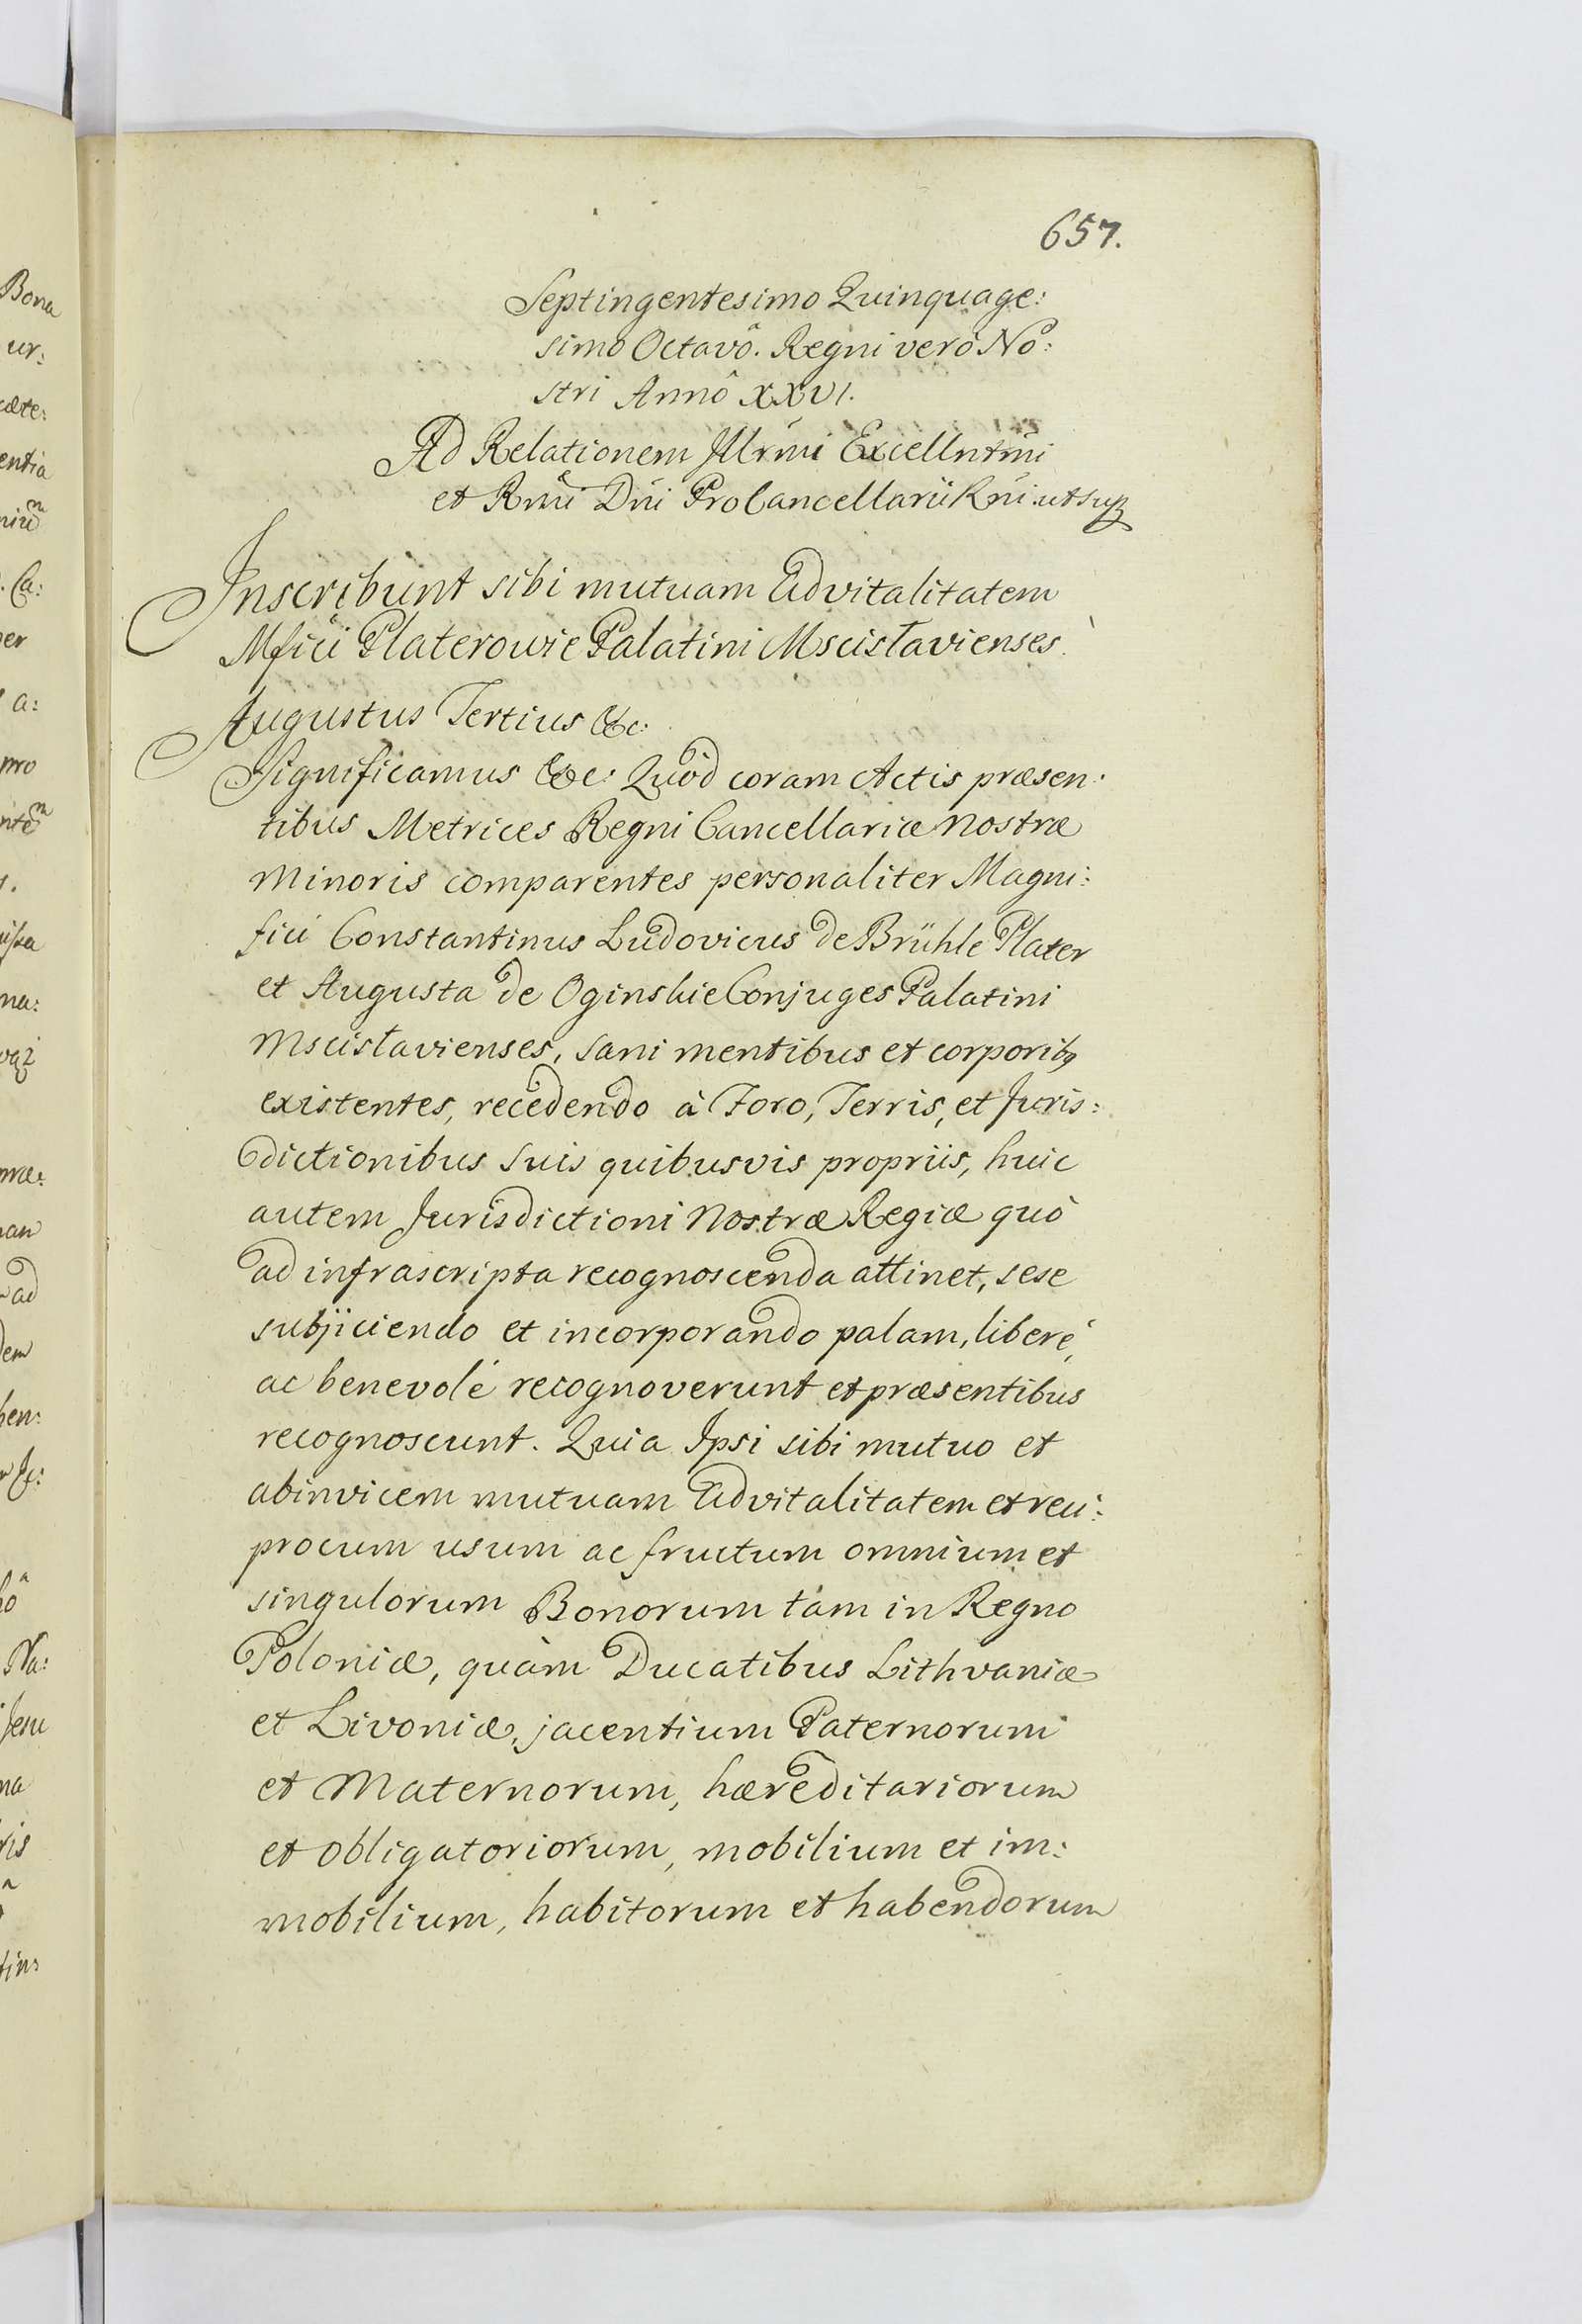 657.
Septingentesimo Quinquage:
simo Octavô. Regni verò No:
stri Annô XXVI.
Ad Relationem Illrmi Excellntmi
et Rmi Dni ProCancellarii Rni utsup
Inscribunt sibi mutuam Advitalitatem
Mfici Platerowie Palatini Mscisłavienses.
Augustus Tertius &c:
Significamus &c: Quòd coram Actis præsen:
tibus Metrices Regni Cancellariæ Nostræ
Minoris comparentes personaliter Magni:
fici Constantinus Ludovicus de Brühle Plater
et Augusta de Oginskie Conjuges Palatini
Mscisłavienses, sani mentibus et corporibq
existentes, recedendo à Foro, Terris, et Juris:
dictionibus suis quibusvis propriis, huic
autem Jurisdictioni Nostræ Regiæ quò
ad infrascripta recognoscenda attinet, sese
subjiciendo et incorporando palam, liberé,
ac benevolé recognoverunt et præsentibus
recognoscunt. Quia Ipsi sibi mutuo et
abinvicem mutuam Advitalitatem et reci:
procum usum ac fructum omnium et
singulorum Bonorum tàm in Regno
Poloniæ, quàm Ducatibus Lithvaniæ
et Livoniæ, jacentium Paternorum
et Maternorum, hæreditariorum
et obligatoriorum, mobilium et im:
mobilium, habitorum et habendorum